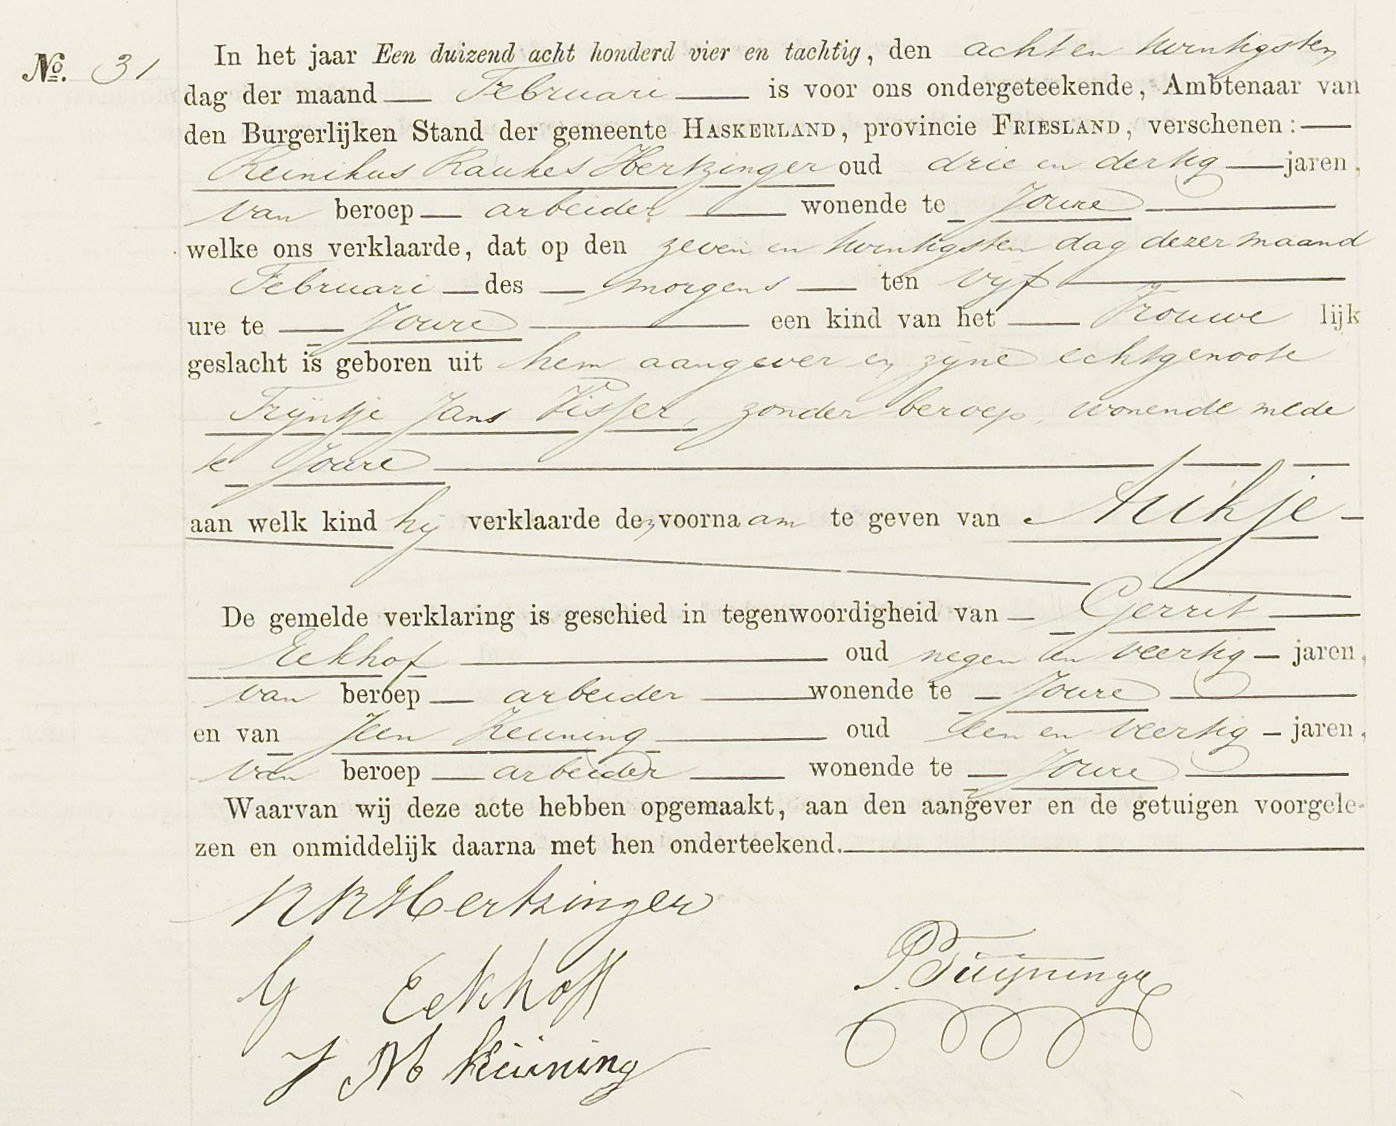 No. 31
In het jaar Een duizend acht honderd vier en tachtig, den acht en twintigsten
dag der maand Februari is voor ons ondergeteekende, Ambtenaar van
den Burgerlijken Stand der gemeente HASKERLAND, provincie FRIESLAND, verschenen:
Reinikus Raukes Hertzinger oud drie en dertig jaren,
van beroep arbeider wonende te Joure
welke ons verklaarde, dat op den zeven en twintigsten dag dezer maand
Februari des morgens ten vijf
ure te Joure een kind van het Vrouwe lijk
geslacht is geboren uit hem aangever en zijne echtgenoote
Trijntje Jans Visser, zonder beroep, wonende mede
te Joure
aan welk kind hij verklaarde den voornaam te geven van Aukje
De gemelde verklaring is geschied in tegenwoordigheid van Gerrit
Eekhof oud negen en veertig jaren,
van beroep arbeider wonende te Joure
en van Jeen Keuning oud een en veertig jaren,
van beroep arbeider wonende te Joure
Waarvan wij deze acte hebben opgemaakt, aan den aangever en de getuigen voorgele-
zen en onmiddelijk daarna met hen onderteekend.
R R Hertzinger
G Eekhoff
J M Keuning